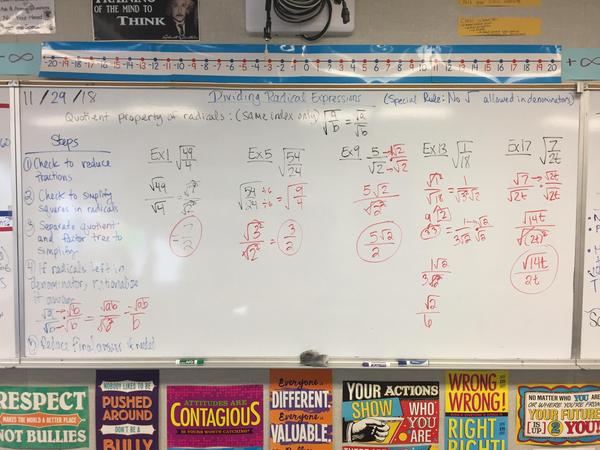 TRAINING
OF THE MIND TO
THINK
-20 -19 -18 -17 -16 -15 -14 -13 -12 -11 -10 -9 -8 -7 -6 -5 -4 -3 -2 -1 0 1 2 3 4 5 6 7 8 9 10 11 12 13 14 15 16 17 18 19 20
-∞
+∞
11/29/18
Dividing Radical Expressions
(Special Rule: No √ allowed in denominators)
Quotient property of radicals: (same index only) √(a/b) = √a/√b
Steps
① Check to reduce
fractions
② Check to simplify
squares in radicals
③ Separate quotient
and factor tree to
simplify
④ If radicals left in
denominator, rationalize
√a/√b · √b/√b = √ab/√b² = √ab/b
⑤ Reduce Final answers if needed
Ex 1 √(49/4)
√49/√4
= 7/2
Ex 5 √(54/24)
54 ÷6/24 ÷6 = √(9/4)
√3²/√2² = 3/2
Ex 9 5/√2 · √2/√2
5√2/√2²
5√2/2
Ex 13 √(1/18)
√1/√18 = 1/√3²√2
9 2
3 3
1/3√2 · √2/√2
1√2/3√2²
√2/6
Ex 17 √(7/2t)
√7/√2t · √2t/√2t
√14t/√(2t)²
√14t/2t
RESPECT
MAKES THE WORLD A BETTER PLACE
NOT BULLIES
NOBODY LIKES TO BE
PUSHED
AROUND
DON'T BE A
BULLY
ATTITUDES ARE
CONTAGIOUS
IS YOURS WORTH CATCHING?
Everyone is
DIFFERENT.
Everyone is
VALUABLE.
YOUR ACTIONS
SHOW WHO
YOU
ARE
WRONG
WRONG!
RIGHT
RIGHT!
NO MATTER WHO YOU ARE
OR WHERE YOU'RE FROM
YOUR FUTURE
IS UP 2 YOU!